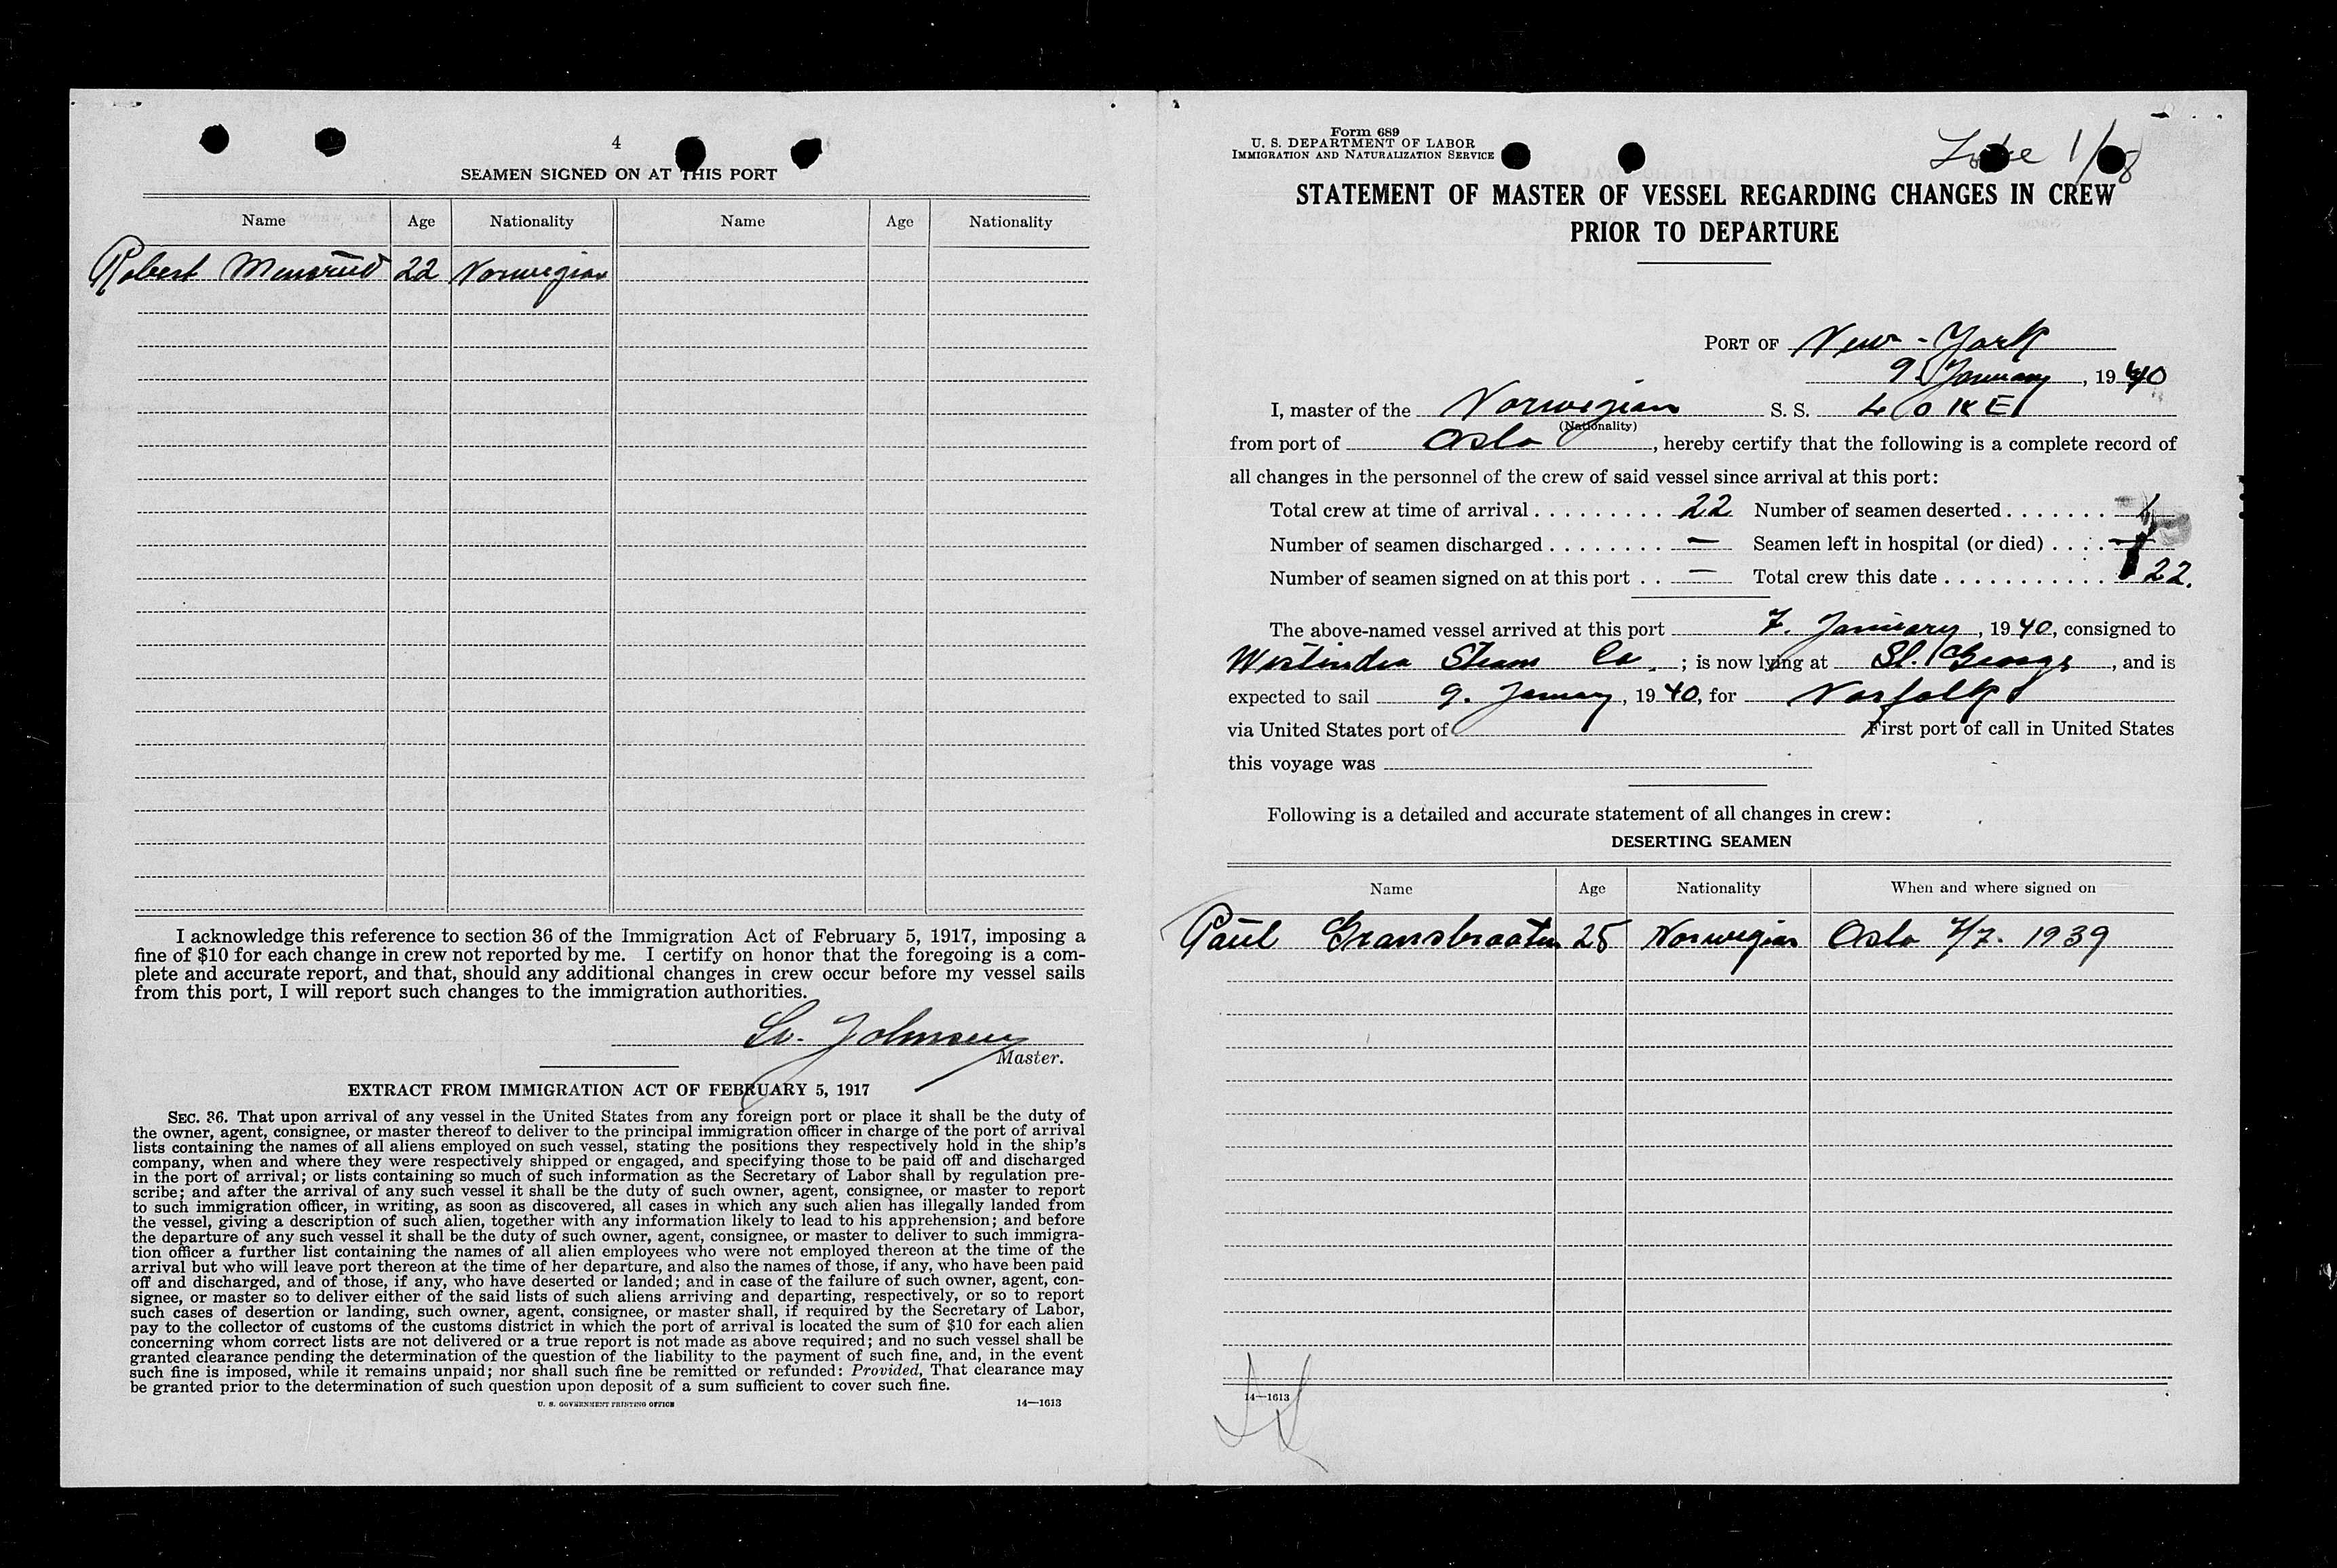 4
SEAMEN SIGNED ON AT THIS PORT
Name Age Nationality Name Age Nationality
Robert 22 Norwegian
I acknowledge this reference to section 36 of the Immigration Act of February 5, 1917, imposing a
fine of $10 for each change in crew not reported by me. I certify on honor that the foregoing is a com-
plete and accurate report, and that, should any additional changes in crew occur before my vessel sails
from this port, I will report such changes to the immigration authorities.
Johnsen
Master.
EXTRACT FROM IMMIGRATION ACT OF FEBRUARY 5, 1917
SEC. 36. That upon arrival of any vessel in the United States from any foreign port or place it shall be the duty of
the owner, agent, consignee, or master thereof to deliver to the principal immigration officer in charge of the port of arrival
lists containing the names of all aliens employed on such vessel, stating the positions they respectively hold in the ship's
company, when and where they were respectively shipped or engaged, and specifying those to be paid off and discharged
in the port of arrival; or lists containing so much of such information as the Secretary of Labor shall by regulation pre-
scribe; and after the arrival of any such vessel it shall be the duty of such owner, agent, consignee, or master to report
to such immigration officer, in writing, as soon as discovered, all cases in which any such alien has illegally landed from
the vessel, giving a description of such alien, together with any information likely to lead to his apprehension; and before
the departure of any such vessel it shall be the duty of such owner, agent, consignee, or master to deliver to such immigra-
tion officer a further list containing the names of all alien employees who were not employed thereon at the time of the
arrival but who will leave port thereon at the time of her departure, and also the names of those, if any, who have been paid
off and discharged, and of those, if any, who have deserted or landed; and in case of the failure of such owner, agent, con-
signee, or master so to deliver either of the said lists of such aliens arriving and departing, respectively, or so to report
such cases of desertion or landing, such owner, agent, consignee, or master shall, if required by the Secretary of Labor,
pay to the collector of customs of the customs district in which the port of arrival is located the sum of $10 for each alien
concerning whom correct lists are not delivered or a true report is not made as above required; and no such vessel shall be
granted clearance pending the determination of the question of the liability to the payment of such fine, and, in the event
such fine is imposed, while it remains unpaid; nor shall such fine be remitted or refunded: Provided, That clearance may
be granted prior to the determination of such question upon deposit of a sum sufficient to cover such fine.
U. S. GOVERNMENT PRINTING OFFICE 14—1613
Form 689
U. S. DEPARTMENT OF LABOR
IMMIGRATION AND NATURALIZATION SERVICE
STATEMENT OF MASTER OF VESSEL REGARDING CHANGES IN CREW
PRIOR TO DEPARTURE
PORT OF New-York
9. January, 1940
I, master of the Norwegian S. S. LOKE
(Nationality)
from port of Oslo, hereby certify that the following is a complete record of
all changes in the personnel of the crew of said vessel since arrival at this port:
Total crew at time of arrival 22 Number of seamen deserted 1
Number of seamen discharged — Seamen left in hospital (or died) —
Number of seamen signed on at this port — Total crew this date 22.
The above-named vessel arrived at this port 7. January, 1940, consigned to
Westindia Steam Co.; is now lying at St. George, and is
expected to sail 9. January, 1940, for Norfolk
via United States port of First port of call in United States
this voyage was
Following is a detailed and accurate statement of all changes in crew:
DESERTING SEAMEN
Name Age Nationality When and where signed on
Paul Gransbraaten 25 Norwegian Oslo 1939
14—1613